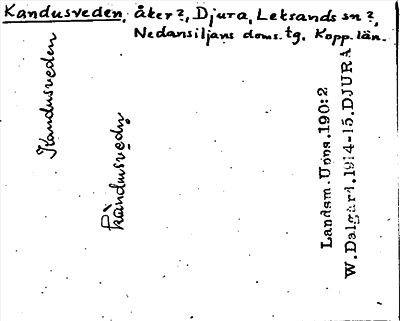 Kandusveden, åker?, Djura, Leksands sn?,
Nedansiljans doms.tg. Kopp. län.
Kandusveden
Landsm. Upps. 190:2
W. Dalgård. 1914-15. DJURA